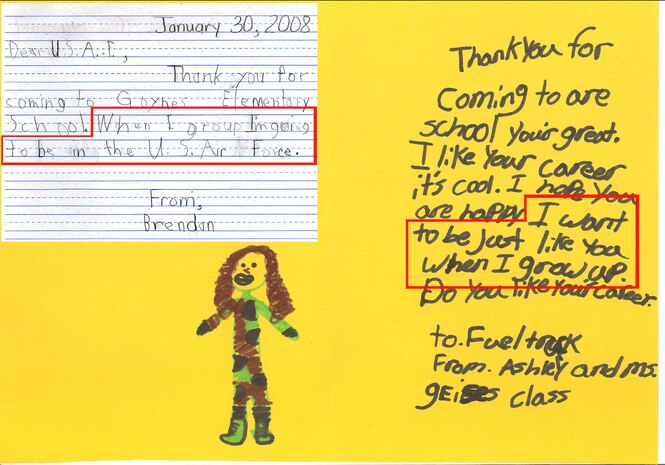 January 30, 2008
Dear U.S.A.F.,
Thank you for
coming to Gaynes Elementary
School. When I group I'm going
to be in the U.S. Air Force.
From,
Brendan
Thank you for
Coming to are
school your's great.
I like your career
it's cool. I hope you
are happy I want
to be just like you
when I grow up.
Do you like your career.
to. Fuel truck
From. Ashley and ms.
geises class